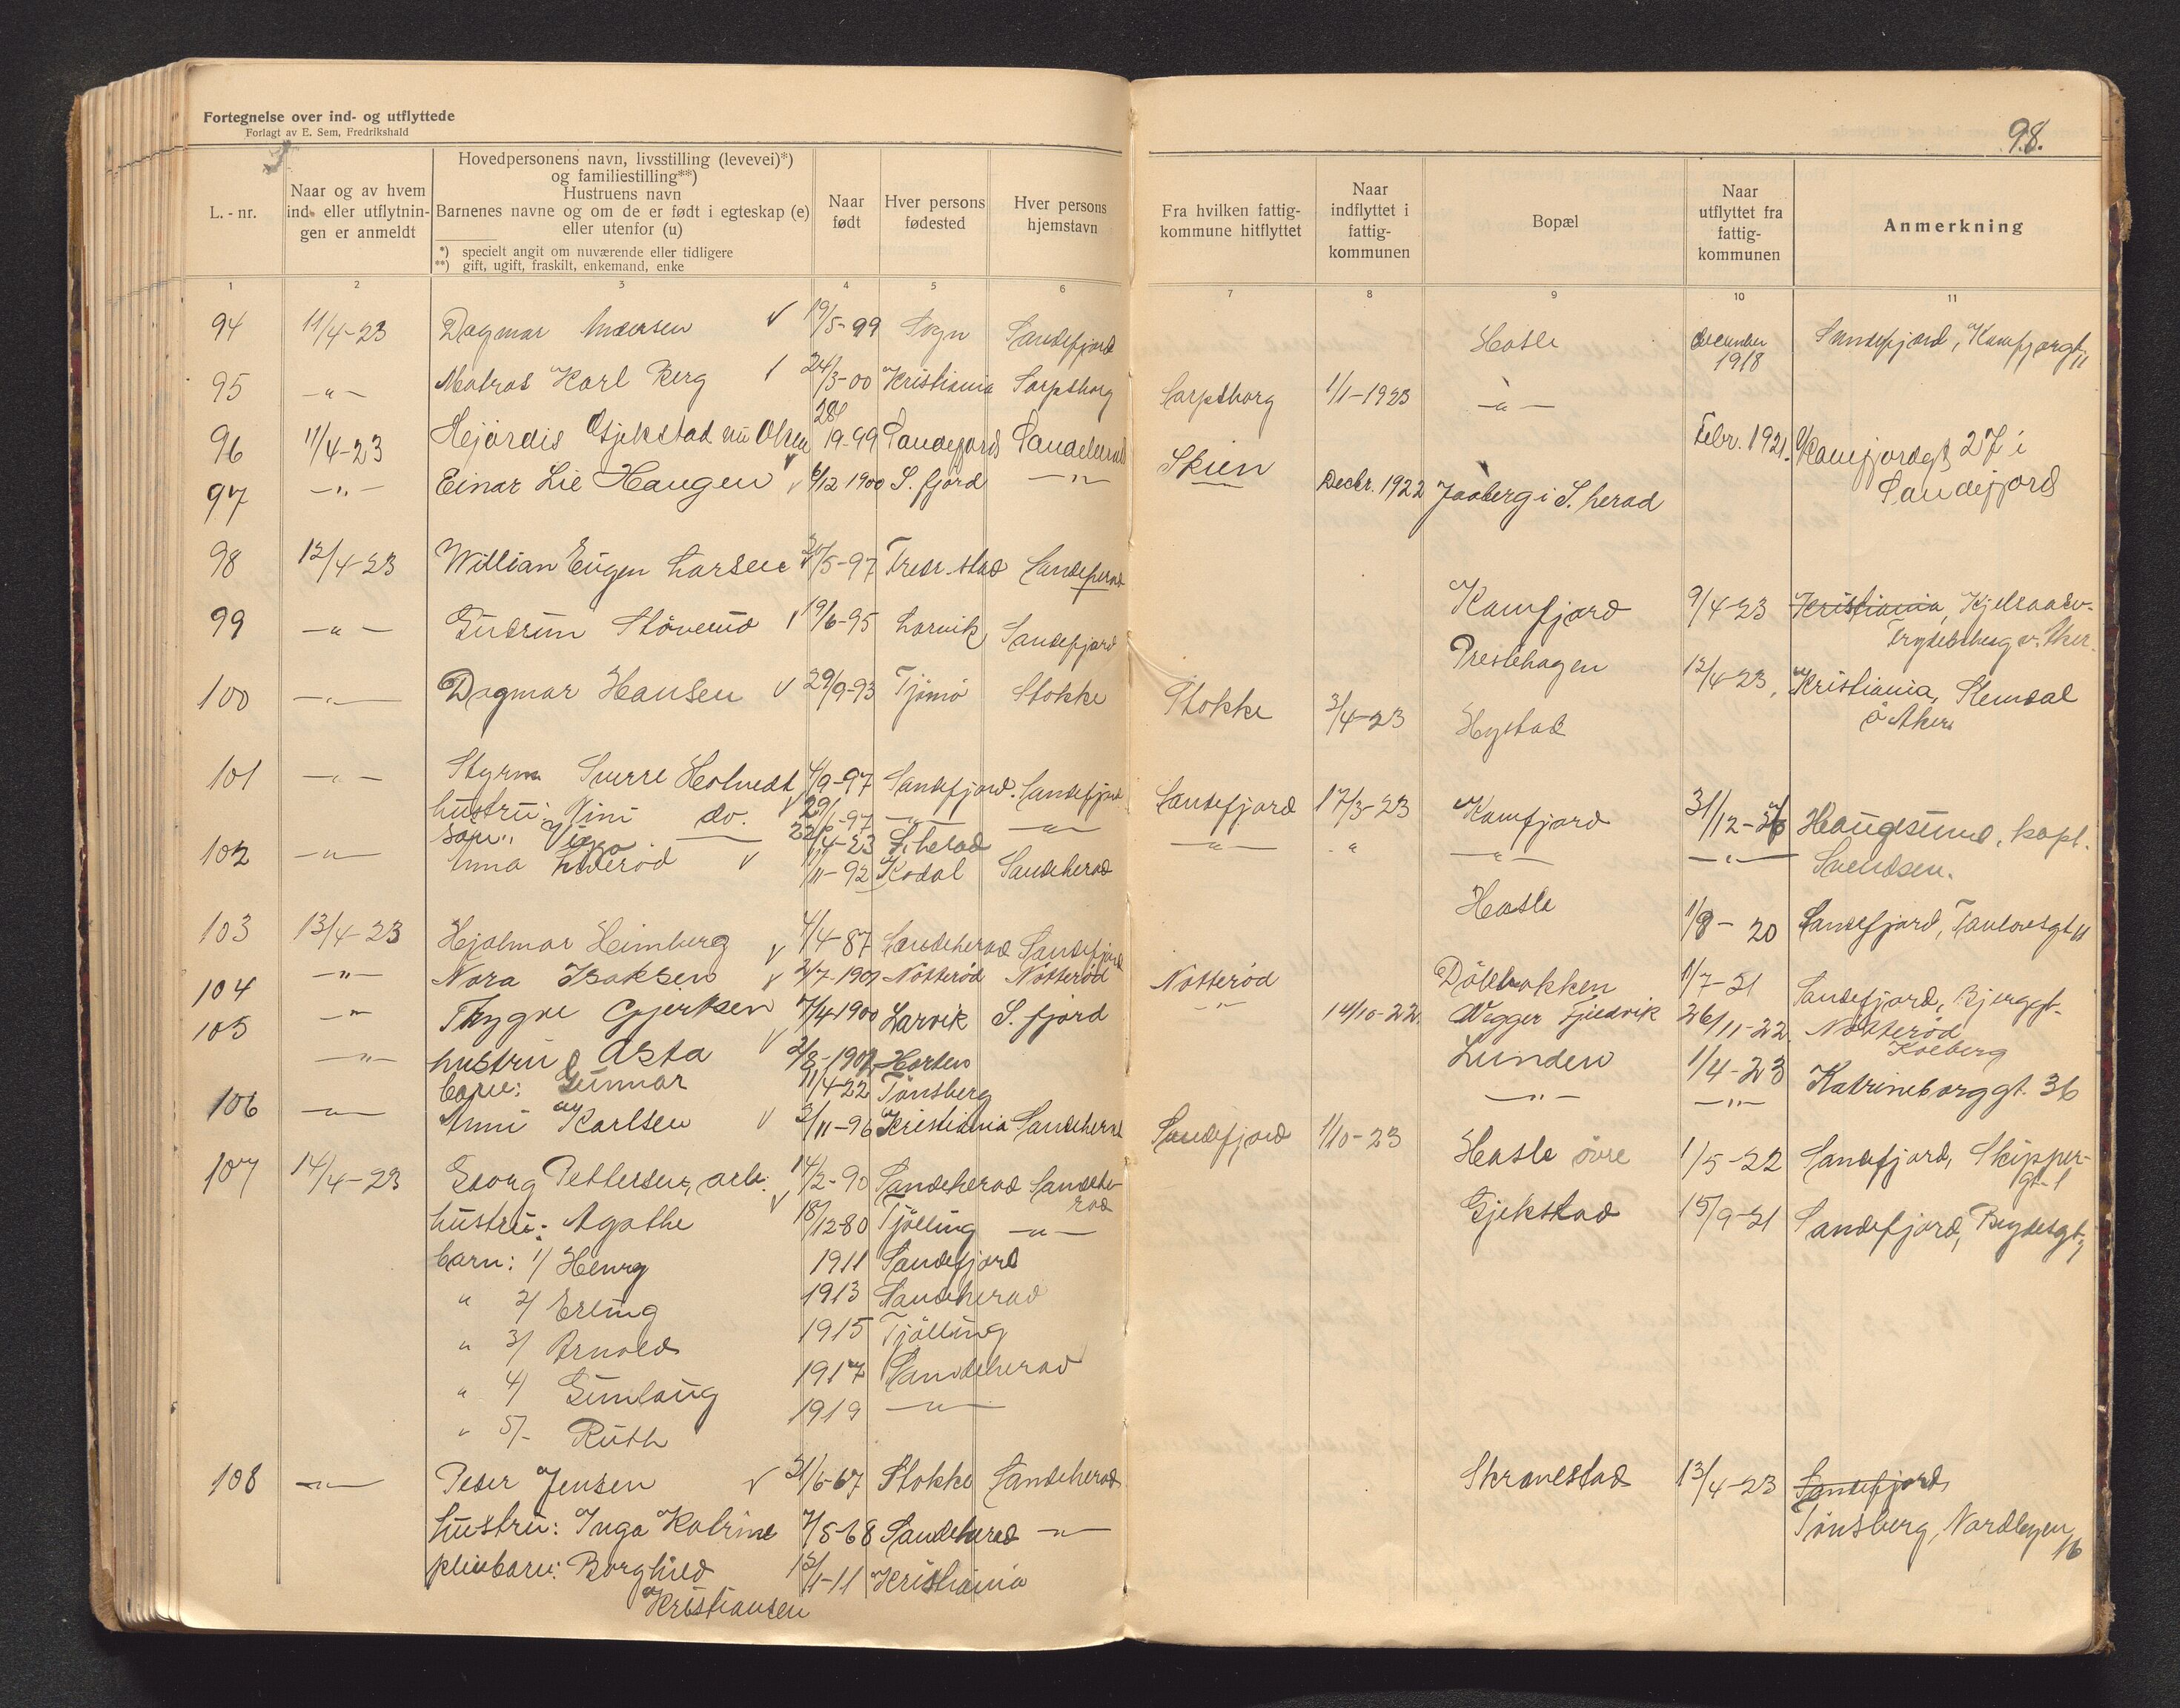 Fortegnelse over ind- og utflyttede
Forlagt av E. Sem, Fredrikshald
98.
L.-nr.
Naar og av hvem ind- eller utflytnin-gen er anmeldt
Hovedpersonens navn, livsstilling (levevei)*)
og familiestilling**)
Hustruens navn
Barnenes navne og om de er født i egteskap (e)
eller utenfor (u)
*) specielt angit om nuværende eller tidligere
**) gift, ugift, fraskilt, enkemand, enke
Naar født
Hver persons fødested
Hver persons hjemstavn
Fra hvilken fattig-kommune hitflyttet
Naar indflyttet i fattig-kommunen
Bopæl
Naar utflyttet fra fattig-kommunen
Anmerkning
1 2 3 4 5 6 7 8 9 10 11
94 11/4-23 Dagmar 19/5-99 Sogn Sandefjord Hasle december 1918 Sandefjord, Kamfjorgt. 11
95 -"- Matros Karl Berg 24/3-00 Kristiania Sarpsborg Sarpsborg 1/1-1923 -"-
96 11/4-23 Hejördis Gjekstad nu Olsen 28/19-99 Sandefjord Sandeherad Febr. 1921. Kamfjordgt 27 i
97 -"- Einar Lie Haugen 6/12 1900 S. fjord -"- Skien Decbr. 1922 Jaaberg i S. herad Sandefjord
98 12/4-23 Willian Eugen Larsen 30/5-97 Fredr.stad Sandeherad Kamfjord 9/4-23 Kristiania, Kjelsaasv.
99 -"- Gudrun Stövemo 19/6-95 Larvik Sandefjord Prestehagen 12/4-23 Kristiania, Slemdal
ö Aker.
100 -"- Dagmar Hansen 29/9-93 Tjömö Stokke Stokke 3/4-23 Hystad
101 -"- Styrm Sverre Holvedt 4/9-97 Sandefjord. Sandefjord Sandefjord 17/3-23 Kamfjord 31/12-26 Haugesund, kapt.
hustru: Nini do. 29/1-97 -"- -"- -"- " -"- -"- Svendsen.
søn: Viggo 22/4-23 S. herad
102 -"- Anna Liverød 1/11-92 Kodal Sandeherad Hasle 1/8-20 Sandefjord,
103 13/4-23 Hjalmar Heimberg 4/4-87 Sandeherad Sandefjord Dölebakken 1/7-21 Sandefjord, Bjerggt.
104 -"- Nora Isaksen 2/7-1901 Nötterød Nötterød Nötterød 14/10-22. Wegger Fjeldvik 26/11-22. Nötterød
Kolberg
105 -"- Trygve Gjertsen 7/4-1900 Larvik S. fjord -"- Lunden 1/4-23 Katrineborggt. 36
-"- hustru Asta 2/8-1901 Horten -"- -"-
barn: Gunnar 11/4-22 Tönsberg
106 -"- Anni Karlsen 2/11-96 Kristiania Sandeherad Sandefjord 1/10-23 Hasle övre 1/5-22 Sandefjord, Skipper-
gt. 1
107 14/4-23 Georg Pettersen, arb. 14/2-90 Sandeherad Sandehe-
rad Gjekstad 15/9-21 Sandefjord,
hustru: Agathe 18/12-80 Tjölling -"-
barn: 1/ Henry 1911 Sandefjord
" 2/ Erling 1913 Sandeherad
" 3/ Arnold 1915 Tjölling
" 4/ Gunlaug 1917 Sandeherad
" 5/- Ruth 1919 -"-
108 -"- Peder Jensen 21/6-67 Stokke Sandeherad Skravestad 13/4-23 Sandefjord,
hustru: Inga Katrine 7/5-68 Sandeherad -"- Tönsberg, Nordbyen
16
pleiebarn: Borghild 13/1-11 Kristiania
Kristiansen